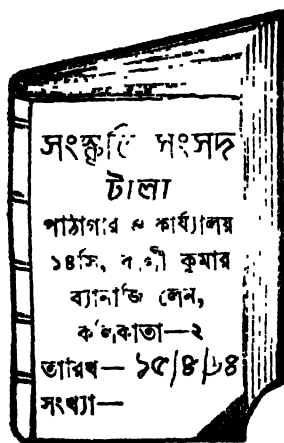 সংস্কৃতি সংসদ
টালা
পাঠাগার ও কার্য্যালয়
১৪সি, কুমার
ব্যানার্জি লেন,
কলিকাতা—২
তারিখ— ১৫/৪/৬৪
সংখ্যা—